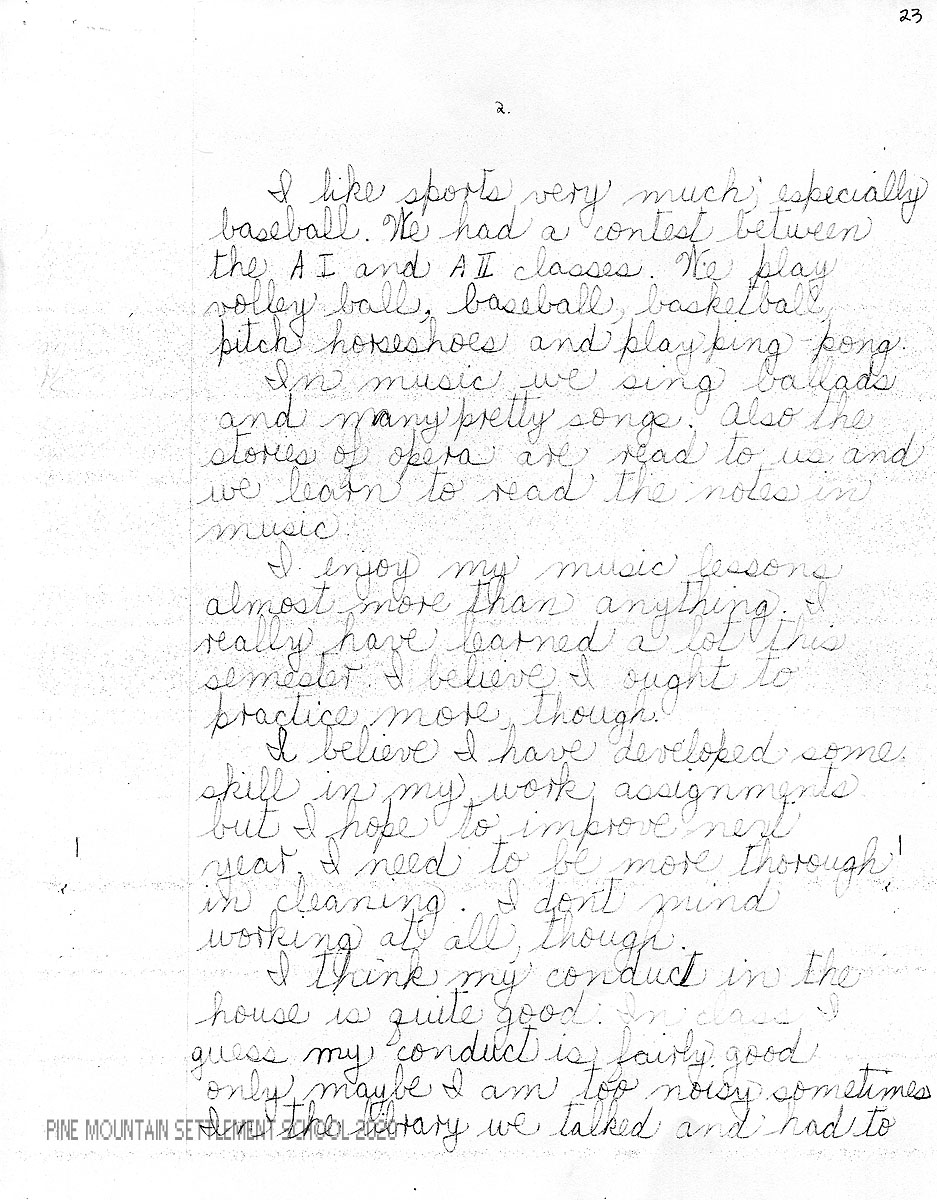 23
2.
I like sports very much, especially
baseball. We had a contest between
the A I and A II classes. We play
volley ball, baseball, basketball,
pitch horseshoes and play ping-pong.
In music we sing ballads
and many pretty songs. Also the
stories of opera are read to us and
we learn to read the notes in
music.
I enjoy my music lessons
almost more than anything. I
really have learned a lot this
semester. I believe I ought to
practice more, though.
I believe I have developed some
skill in my work assignments
but I hope to improve next
year. I need to be more thorough
in cleaning. I dont mind
working at all, though.
I think my conduct in the
house is quite good. In class I
guess my conduct is fairly good
only maybe I am too noisy sometimes
In the library we talked and had to
PINE MOUNTAIN SETTLEMENT SCHOOL 2020